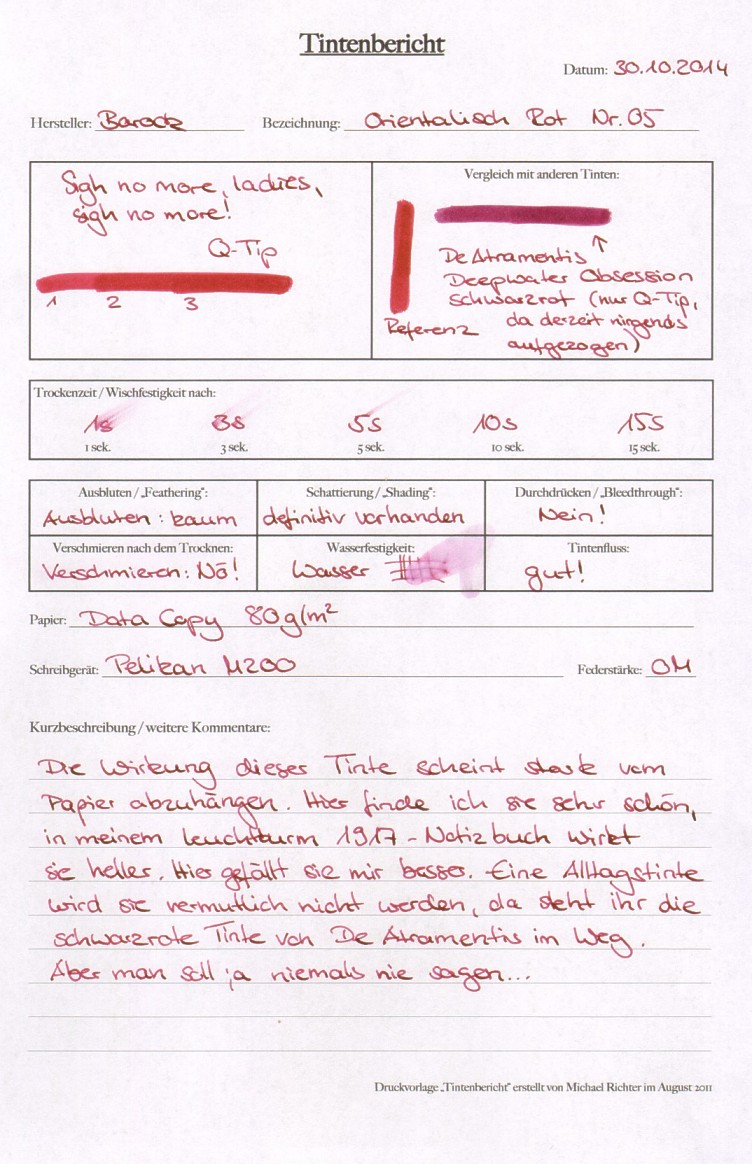 Tintenbericht
Datum: 30.10.2014
Hersteller: Barock Bezeichnung: Orientalisch Rot Nr. 05
Sigh no more, ladies,
sigh no more!
Q-Tip
1 2 3
Vergleich mit anderen Tinten:
Referenz
De Atramentis ↑
Deepwater Obsession
schwarzrot (nur Q-Tip,
da derzeit nirgends
aufgezogen)
Trockenzeit / Wischfestigkeit nach:
1s 3s 5s 10s 15s
1 sek. 3 sek. 5 sek. 10 sek. 15 sek.
Ausbluten / „Feathering“: Schattierung / „Shading“: Durchdrücken / „Bleedthrough“:
Ausbluten: kaum definitiv vorhanden Nein!
Verschmieren nach dem Trocknen: Wasserfestigkeit: Tintenfluss:
Verschmieren: Nö! Wasser gut!
Papier: Data Copy 80g/m²
Schreibgerät: Pelikan M200 Federstärke: OM
Kurzbeschreibung / weitere Kommentare:
Die Wirkung dieser Tinte scheint stark vom
Papier abzuhängen. Hier finde ich sie sehr schön,
in meinem Leuchtturm 1917-Notizbuch wirkt
sie heller. Hier gefällt sie mir besser. Eine Alltagstinte
wird sie vermutlich nicht werden, da steht ihr die
schwarzrote Tinte von De Atramentis im Weg.
Aber man soll ja niemals nie sagen...
Druckvorlage „Tintenbericht“ erstellt von Michael Richter im August 2011